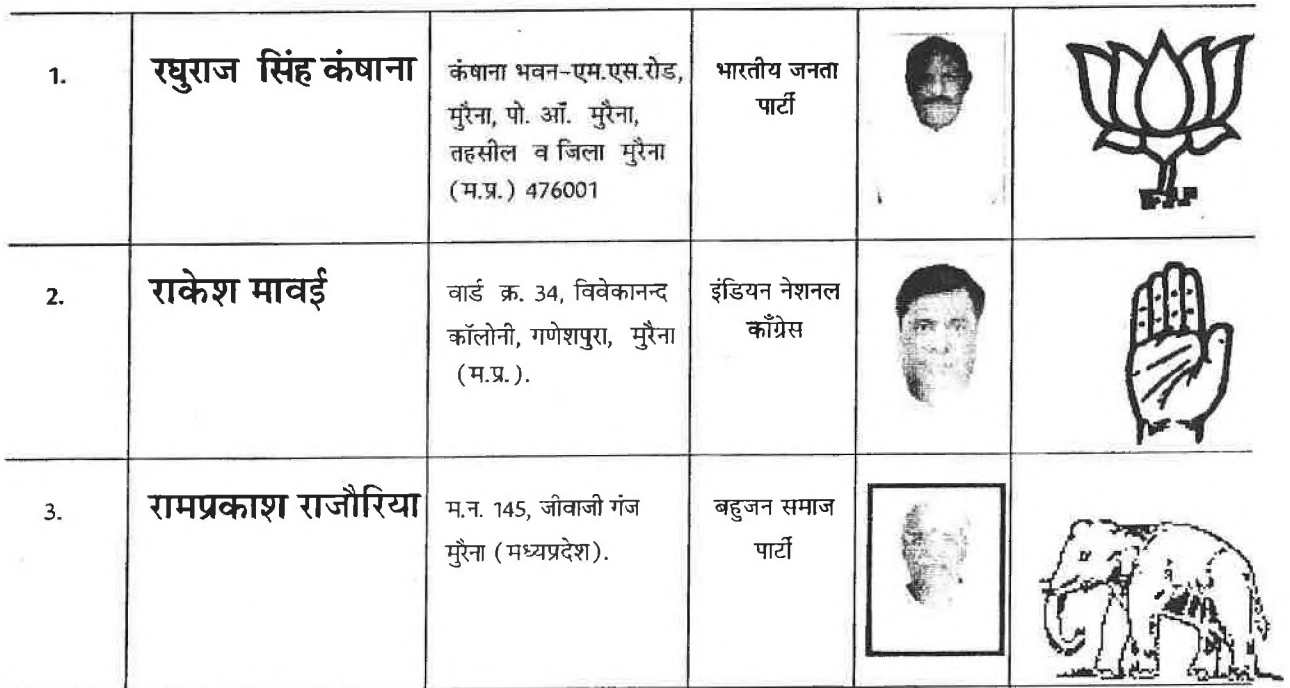 1.
रघुराज सिंह कंषाना
कंषाना भवन-एम.एस.रोड,
मुरैना, पो. ऑं. मुरैना,
तहसील व जिला मुरैना
(म.प्र.) 476001
भारतीय जनता
पार्टी
2.
राकेश मावई
वार्ड क्र. 34, विवेकानन्द
कॉलोनी, गणेशपुरा, मुरैना
(म.प्र.).
इंडियन नेशनल
काँग्रेस
3.
रामप्रकाश राजौरिया
म.न. 145, जीवाजी गंज
मुरैना (मध्यप्रदेश).
बहुजन समाज
पार्टी